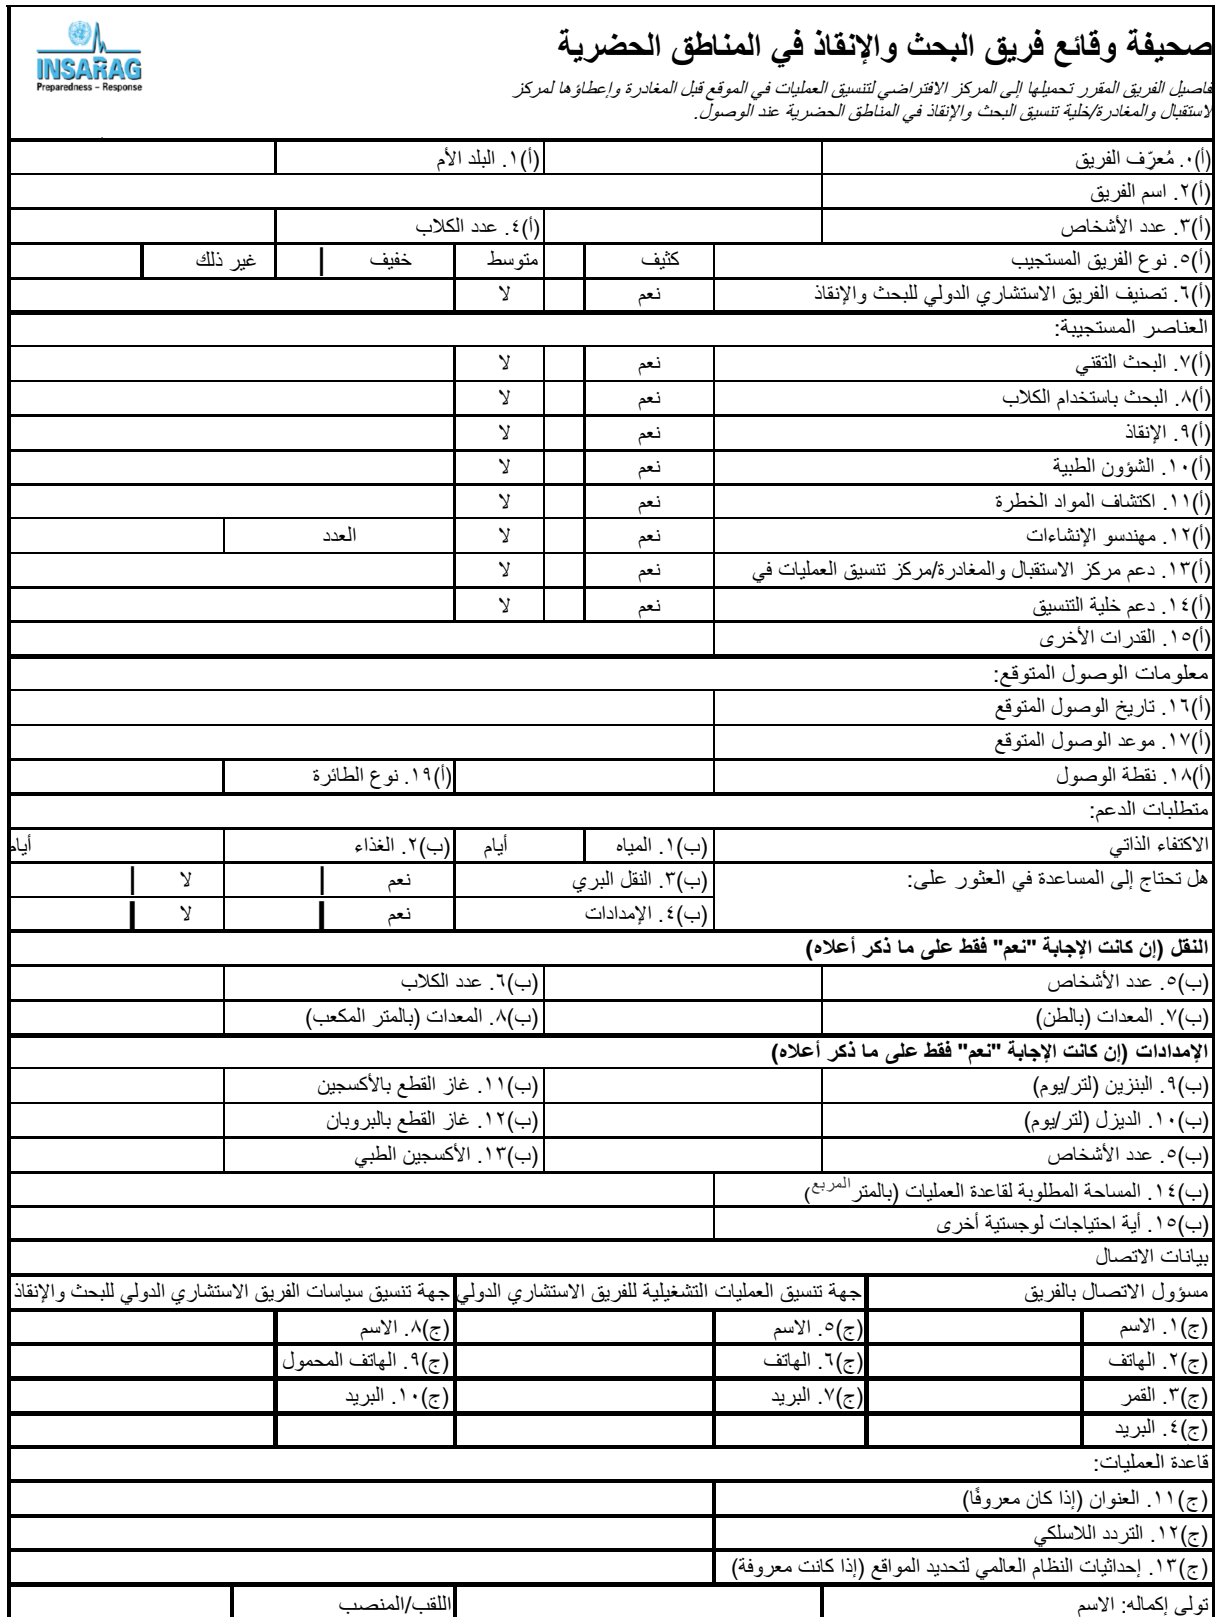 INSARAG
Preparedness – Response
صحيفة وقائع فريق البحث والإنقاذ في المناطق الحضرية
فاصيل الفريق المقرر تحميلها إلى المركز الافتراضي لتنسيق العمليات في الموقع قبل المغادرة وإعطاؤها لمركز
لاستقبال والمغادرة/خلية تنسيق البحث والإنقاذ في المناطق الحضرية عند الوصول.
(أ)٠. مُعرّف الفريق (أ)١. البلد الأم
(أ)٢. اسم الفريق
(أ)٣. عدد الأشخاص (أ)٤. عدد الكلاب
(أ)٥. نوع الفريق المستجيب كثيف متوسط خفيف غير ذلك
(أ)٦. تصنيف الفريق الاستشاري الدولي للبحث والإنقاذ نعم لا
العناصر المستجيبة:
(أ)٧. البحث التقني نعم لا
(أ)٨. البحث باستخدام الكلاب نعم لا
(أ)٩. الإنقاذ نعم لا
(أ)١٠. الشؤون الطبية نعم لا
(أ)١١. اكتشاف المواد الخطرة نعم لا
(أ)١٢. مهندسو الإنشاءات نعم لا العدد
(أ)١٣. دعم مركز الاستقبال والمغادرة/مركز تنسيق العمليات في نعم لا
(أ)١٤. دعم خلية التنسيق نعم لا
(أ)١٥. القدرات الأخرى
معلومات الوصول المتوقع:
(أ)١٦. تاريخ الوصول المتوقع
(أ)١٧. موعد الوصول المتوقع
(أ)١٨. نقطة الوصول (أ)١٩. نوع الطائرة
متطلبات الدعم:
الاكتفاء الذاتي (ب)١. المياه أيام (ب)٢. الغذاء أيام
هل تحتاج إلى المساعدة في العثور على: (ب)٣. النقل البري نعم لا
(ب)٤. الإمدادات نعم لا
النقل (إن كانت الإجابة "نعم" فقط على ما ذكر أعلاه)
(ب)٥. عدد الأشخاص (ب)٦. عدد الكلاب
(ب)٧. المعدات (بالطن) (ب)٨. المعدات (بالمتر المكعب)
الإمدادات (إن كانت الإجابة "نعم" فقط على ما ذكر أعلاه)
(ب)٩. البنزين (لتر/يوم) (ب)١١. غاز القطع بالأكسجين
(ب)١٠. الديزل (لتر/يوم) (ب)١٢. غاز القطع بالبروبان
(ب)٥. عدد الأشخاص (ب)١٣. الأكسجين الطبي
(ب)١٤. المساحة المطلوبة لقاعدة العمليات (بالمتر المربع)
(ب)١٥. أية احتياجات لوجستية أخرى
بيانات الاتصال
مسؤول الاتصال بالفريق جهة تنسيق العمليات التشغيلية للفريق الاستشاري الدولي جهة تنسيق سياسات الفريق الاستشاري الدولي للبحث والإنقاذ
(ج)١. الاسم (ج)٥. الاسم (ج)٨. الاسم
(ج)٢. الهاتف (ج)٦. الهاتف (ج)٩. الهاتف المحمول
(ج)٣. القمر (ج)٧. البريد (ج)١٠. البريد
(ج)٤. البريد
قاعدة العمليات:
(ج)١١. العنوان (إذا كان معروفًا)
(ج)١٢. التردد اللاسلكي
(ج)١٣. إحداثيات النظام العالمي لتحديد المواقع (إذا كانت معروفة)
تولى إكماله: الاسم اللقب/المنصب